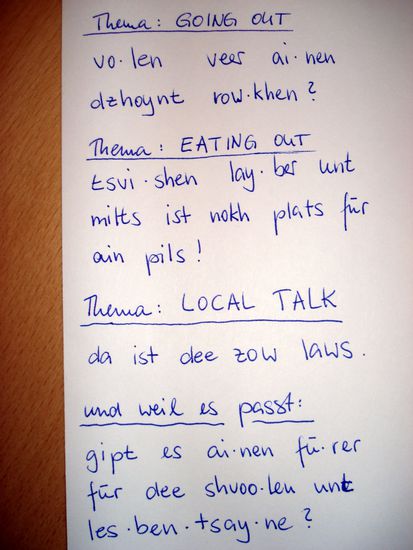 Thema: GOING OUT
vo·len veer ai·nen
dzhoynt row·khen?
Thema: EATING OUT
tsvi·shen lay·ber unt
milts ist nokh plats für
ain pils!
Thema: LOCAL TALK
da ist dee zow laws.
und weil es passt:
gipt es ai·nen fü·rer
für dee shvoo·len unt
les·ben·tsay·ne?